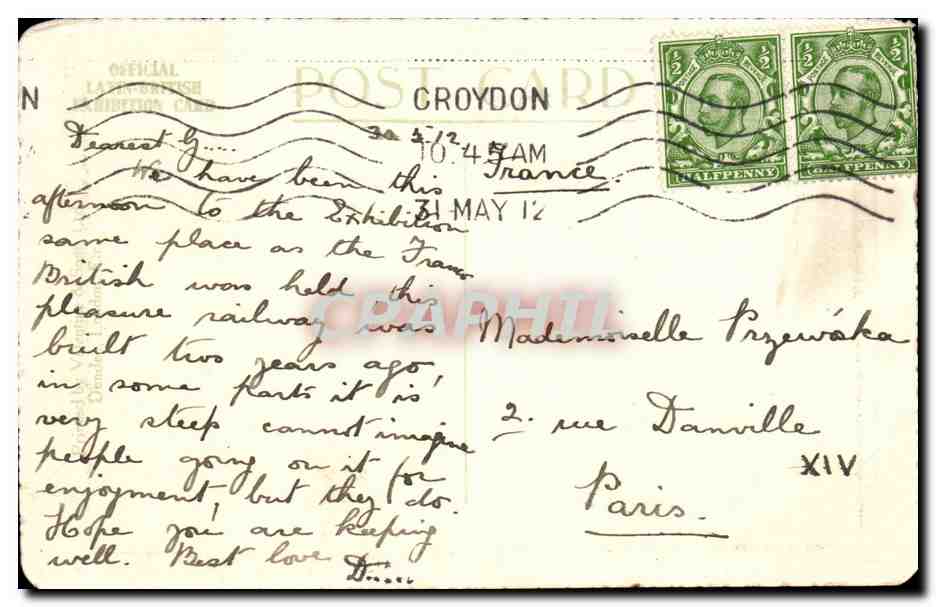 OFFICIAL
LATIN-BRITISH
EXHIBITION CARD
POST CARD
N
CROYDON
10.45 AM
31 MAY 12
1/2 POSTAGE REVENUE 1/2
HALFPENNY
1/2 POSTAGE REVENUE 1/2
HALFPENNY
30.5.12.
Dearest G.....
We have been this
afternoon to the Exhibition
same place as the Franco
British was held this
pleasure railway was
built two years ago,
in some parts it is
very steep cannot imagine
people going on it for
enjoyment, but they do.
Hope you are keeping
well. Best love
D.....
France.
Mademoiselle Przewóska
2. rue Danville
XIV
Paris.
CPAPHIL